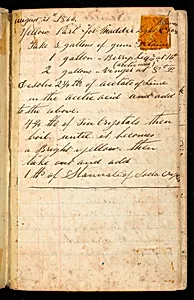 August 21st 1860.
Yellow Part for Madder
Take 3 gallons of gum
1 gallon Berry liq
2 gallons Vinegar at 8° T
Disolve 2½ lb of acetate of Lime
in the acetic acid and add
to the above.
4¾ lb of Tin Crystals then
boil until it becomes
a Bright yellow. then
take out and add
1 lb of Stannate of Soda